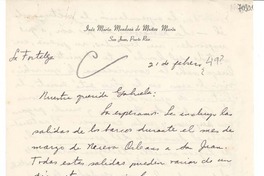 Inés María Mendoza de Muñoz Marín
San Juan, Puerto Rico
La Fortaleza
21 de febrero
Nuestra querida Gabriela:
La esperamos. Le incluyo las
salidas de los barcos durante el mes de
marzo de Nueva Orleans a San Juan.
Todas estas salidas pueden variar de un